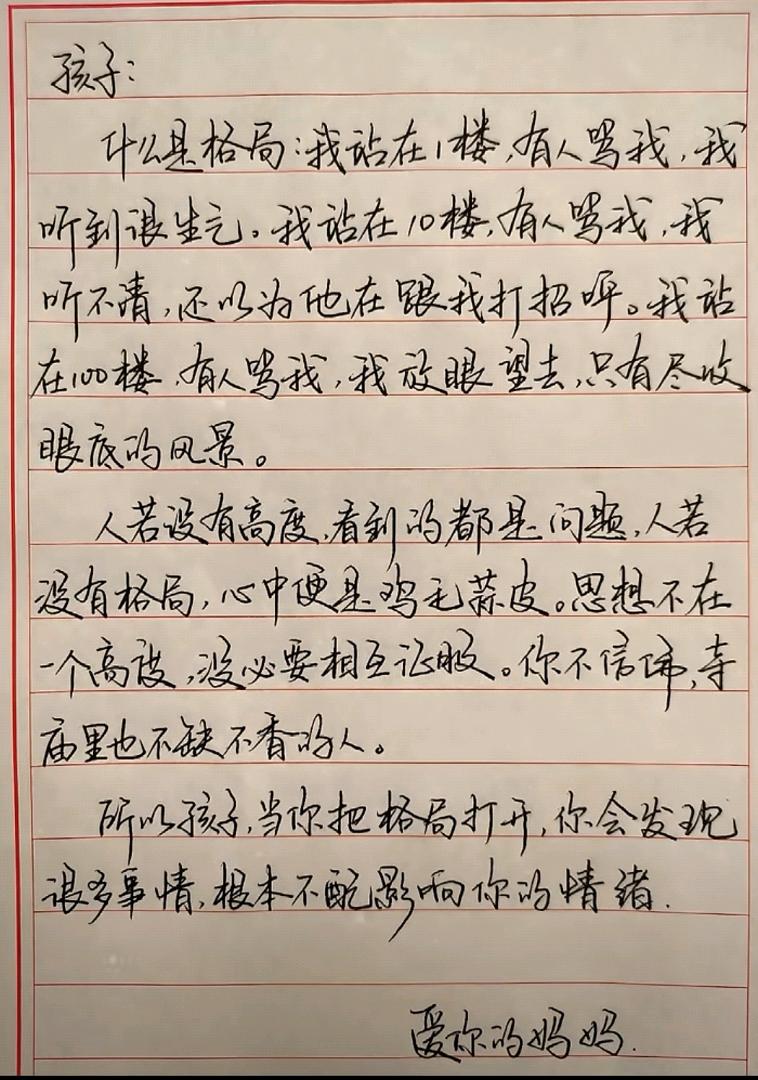 孩子:
什么是格局:我站在1楼,有人骂我,我
听到很生气。我站在10楼,有人骂我,我
听不清,还以为他在跟我打招呼。我站
在100楼,有人骂我,我放眼望去,只有尽收
眼底的风景。
人若没有高度,看到的都是问题,人若
没有格局,心中便是鸡毛蒜皮。思想不在
一个高度,没必要相互证服。你不信佛,寺
庙里也不缺不香的人。
所以孩子,当你把格局打开,你会发现
很多事情,根本不配影响你的情绪.
爱你的妈妈.